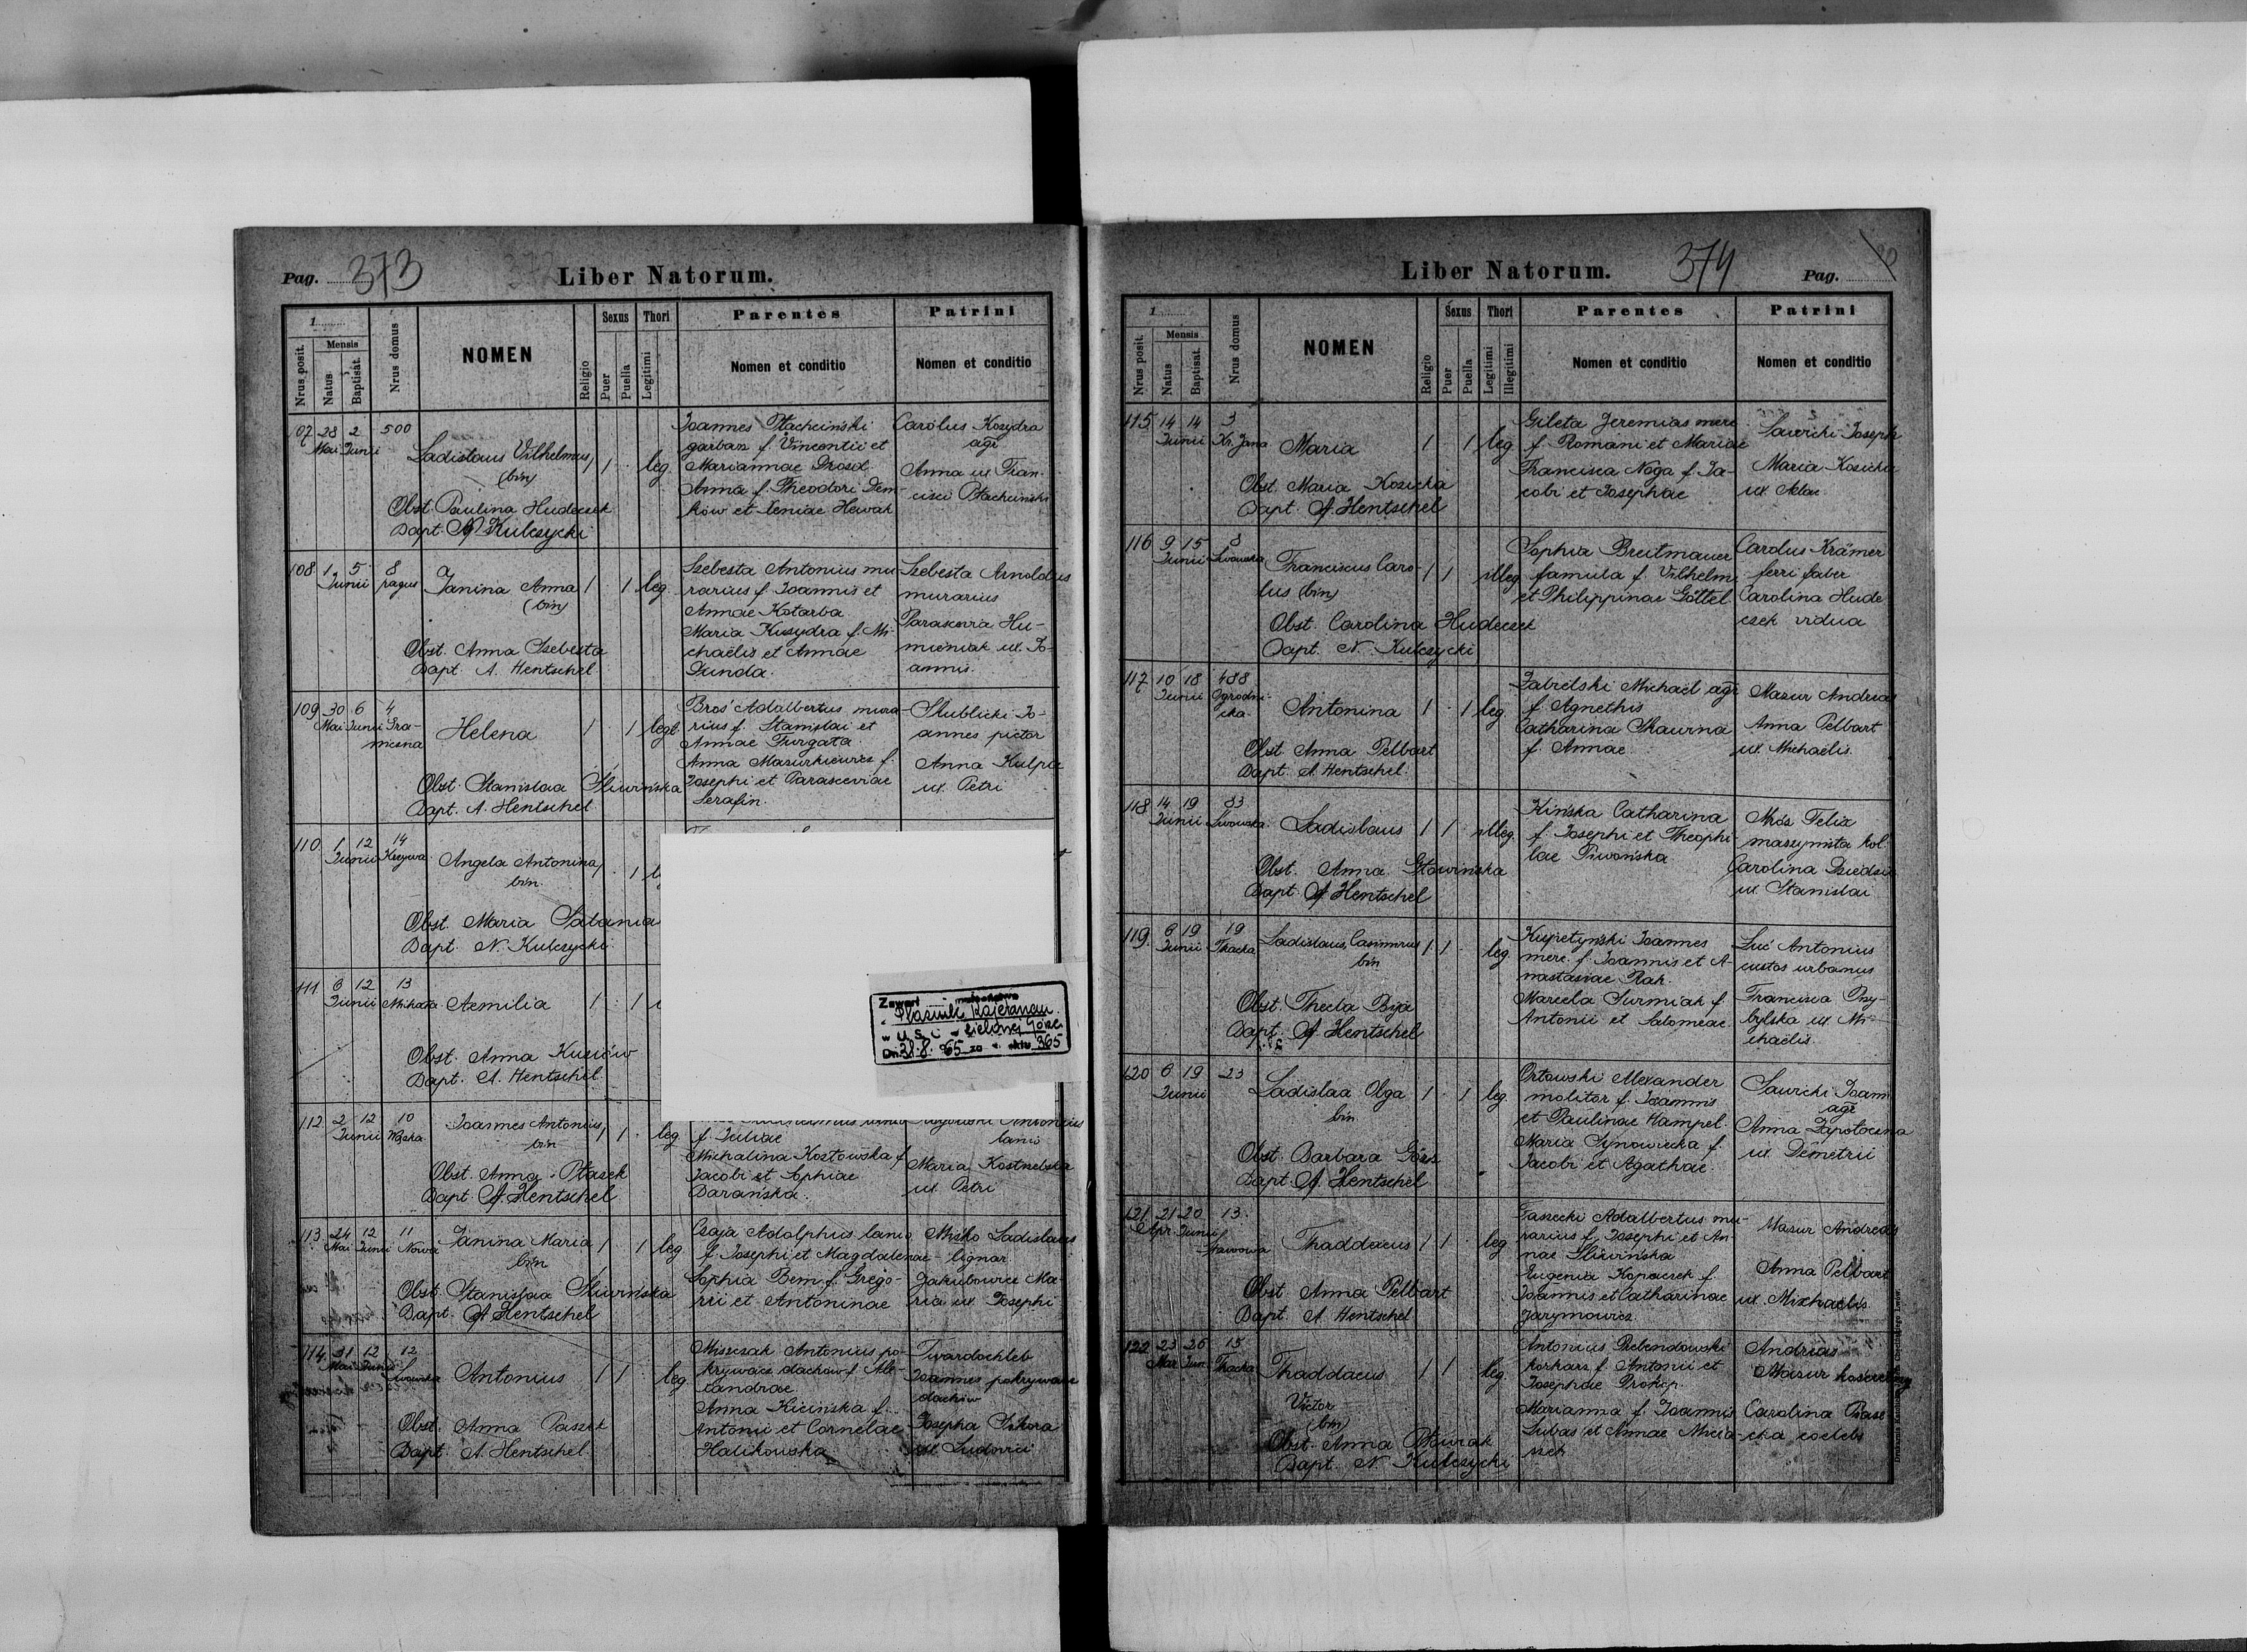 Pag. 373
Liber Natorum.
1
Nrus posit.
Mensis
Natus
Baptisat.
Nrus domus
NOMEN
Religio
Sexus
Puer
Puella
Thori
Legitimi
Parentes
Nomen et conditio
Patrini
Nomen et conditio
107 28 Mai 2 Junii 500
Ladislaus Vilhelmus
(bin)
1 1 leg.
Obst. Paulina Hudeczek
Bapt. N Kulczycki
Joannes Ptachciński
garbarz f. Vincentii et
Mariannae Drozd
Anna f. Theodori Dem-
ków et Xeniae Hewak
Carolus Kosydra
agr
Anna ux Fran-
cisci Ptachciński
108 1 5 Junii 8 pagus
Janina Anna
(bin)
1 1 leg.
Obst. Anna Szebesta
Bapt. A. Hentschel
Szebesta Antonius mu-
rarius f. Joannis et
Annae Kotarba
Maria Kusydra f. Mi-
chaëlis et Annae
Dunda.
Szebesta Arnoldus
murarius
Parascevia Hu-
mieniak ux. Jo-
annis.
109 30 Mai 6 Junii 4
Helena
1 1 leg.
Obst. Stanislaa Śliwińska
Bapt. A. Hentschel
Broś Adalbertus mura-
rius f. Stanislai et
Annae Furgata
Anna Mazurkiewicz f.
Josephi et Parasceviae
Serafin.
Stublicki Jo-
annes pictor
Anna Kulpa
ux. Petri
110 1 12 Junii 14 Krzywa
Angela Antonina
bin.
1 1
Obst. Maria Satania
Bapt. N. Kulczycki
111 6 12 Junii 13
Aemilia
1 1
Obst. Anna Kusiów
Bapt. A. Hentschel
Zawarł małżeństwo
w USC Zielonej Górze
Dn. 28.8.65 za nr. aktu 365
112 2 12 Junii 10
Joannes Antonius
bin
1 1 leg.
Obst. Anna Ptaszek
Bapt. A. Hentschel
f. Juliae
Michalina Kozłowska f.
Jacobi et Sophiae
Barańska.
Antonius
lanio
Maria
ux. Petri
113 24 Mai 12 Junii 11 Nowa
Janina Maria
bin
1 1 leg.
Obst. Stanislaa Śliwińska
Bapt. A Hentschel
Czaja Adolphus lanio
f. Josephi et Magdalenae
Sophia Bem f. Grego-
rii et Antoninae
Miśko Ladislaus
lignar.
Jakubowicz Ma-
ria ux. Josephi
114. 31 Mai 12 Junii 12 Lwowska
Antonius
1 1 leg
Obst. Anna Paszek
Bapt. A. Hentschel
Miszczak Antonius po-
krywacz dachów f. Ale-
xandrae
Anna Kicińska f.
Antonii et Corneliae
Halikowska
Twardochleb
Joannes pokrywacz
dachów
Josepha Sikora
ux. Ludovici
Liber Natorum.
374
Pag.
1
Nrus posit.
Mensis
Natus
Baptisat.
Nrus domus
NOMEN
Religio
Sexus
Puer
Puella
Thori
Legitimi
Illegitimi
Parentes
Nomen et conditio
Patrini
Nomen et conditio
115 14 14 Junii 3 Kr. Jana
Maria
1 1 leg
Obst. Maria Kosicka
Bapt. A. Hentschel
Gileta Jeremias merc
f. Romani et Mariae
Francisca Noga f. Ja-
cobi et Josephae
Sawicki Joseph
Maria Kosicka
ux
116 9 15 Junii 8 Lwowska
Franciscus Caro-
lus (bin)
1 1 illeg.
Obst. Carolina Hudeczek
Bapt. N. Kulczycki
Sophia Breitmauer
famula f. Vilhelmi
et Philippinae Göttel.
Carolus Krämer
ferri faber
Carolina Hude
czek vidua
117 10 18 Junii 488 Ogrodni-
cka
Antonina
1 1 leg
Obst. Anna Pelbart
Bapt. A. Hentschel.
Zabielski Michaël agr
f. Agnethis
Catharina Skawina
f. Annae
Mazur Andreas
Anna Pelbart
ux Michaëlis.
118 14 19 Junii 83 Lwowska
Ladislaus
1 1 illeg.
Obst. Anna Głowińska
Bapt. A Hentschel
Kińska Catharina
f. Josephi et Theophi-
lae Piwońska
Mróz Felix
maszynista kol.
Carolina
ux Stanislai
119. 6 19 Junii 19 Tkacka
Ladislaus, Casimirus
bin
1 1 leg
Obst. Thecla Byja
Bapt. A. Hentschel
Kupetyński Joannes
merc. f. Joannis et A-
nastasiae Rak
Marcela Surmiak f.
Antonii et Salomeae
Luć Antonius
custos urbanus
Francisca Przy-
bylska ux Mi-
chaëlis
120 6 19 Junii 23
Ladislaa Olga
bin
1 1 leg
Obst. Barbara Górs
Bapt. A. Hentschel
Orłowski Alexander
molitor f. Joannis
et Paulinae Hampel.
Maria Synowiecka f.
Jacobi et Agathae.
Sawicki Joann
agr
Anna Zapotoczna
ux Demetrii
121 21 Apr. 20 Junii 13. Stawowa
Thaddaeus
1 1 leg
Obst Anna Pelbart
Bapt. A Hentschel
Taszecki Adalbertus mu-
rarius f. Josephi et An-
nae Śliwińska
Eugenia Kopaczek f.
Joannis et Catharinae
Jarymowicz.
Mazur Andreas
Anna Pelbart
ux. Michaelis
122 23 Mar 26 Jun. 15 Tkacka
Thaddaeus
1 1 leg.
Victor
(bin)
Obst. Anna Ptawiak
Bapt. N Kulczycki
Antonius Prebendowski
f. Antonii et
Josephae Prokop
Marianna f. Joannis
Lubas et Annae
Andreas
Mazur
Carolina
cka coelebs